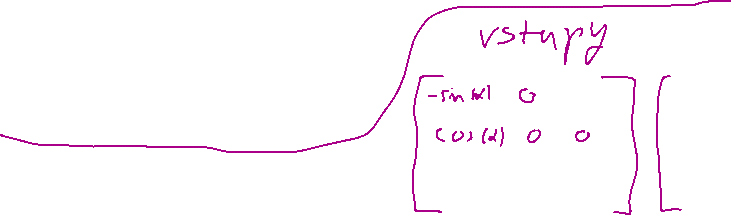 vstupy
-sin(α) 0
cos(α) 0 0